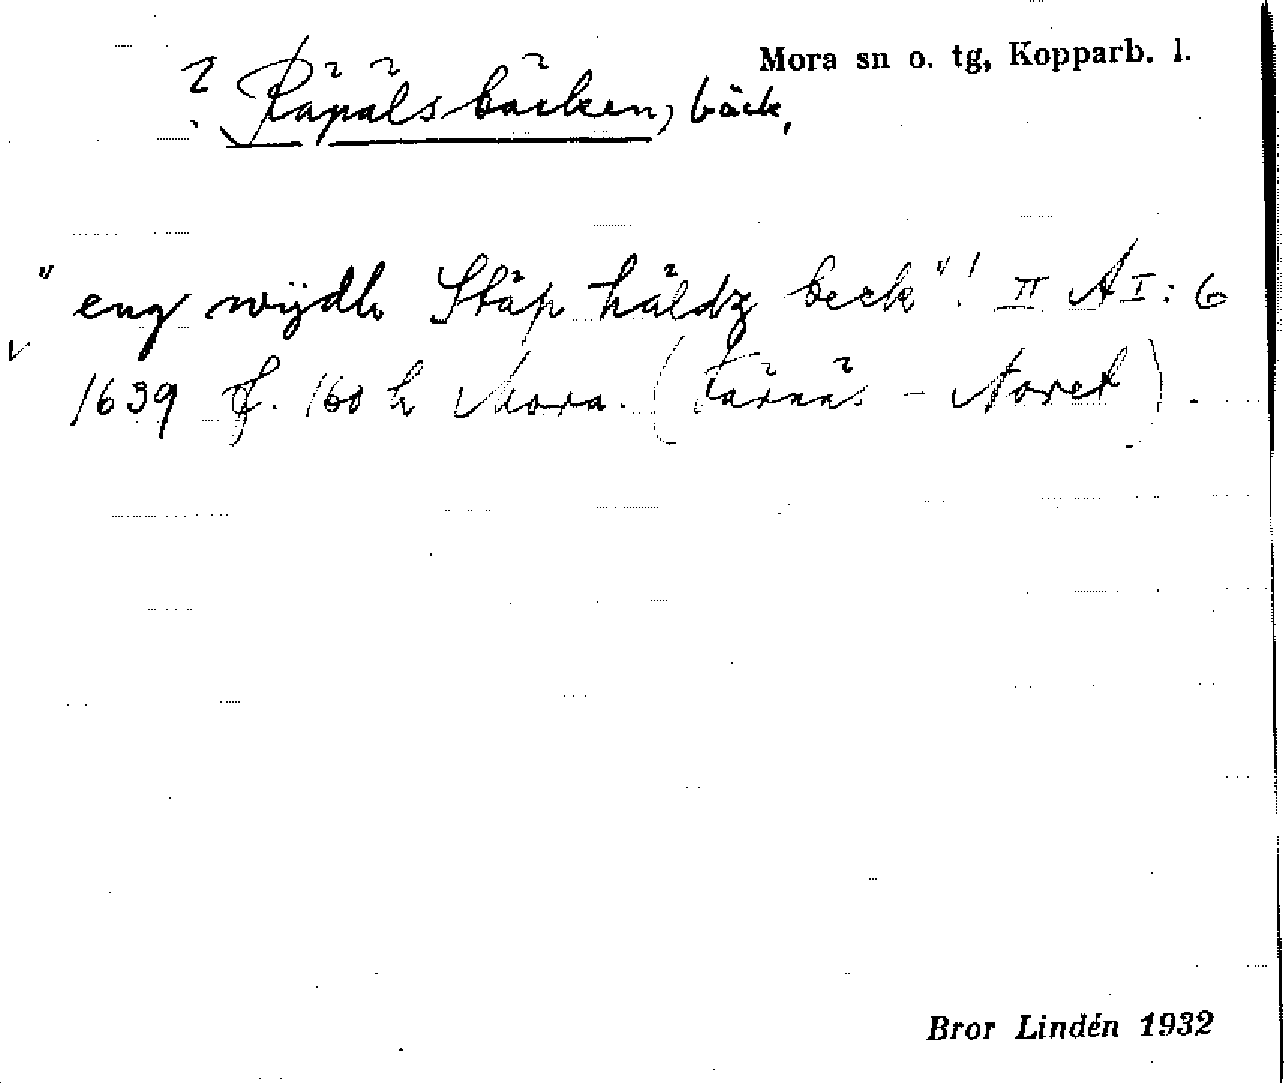 Mora sn o. tg, Kopparb. l.
? Räpålsbäcken, bäck,
"eng wijdh Ståp håldz beck"! II A I: 6
1639 f. 160 h Mora. (Färnäs - Noret).
Bror Lindén 1932